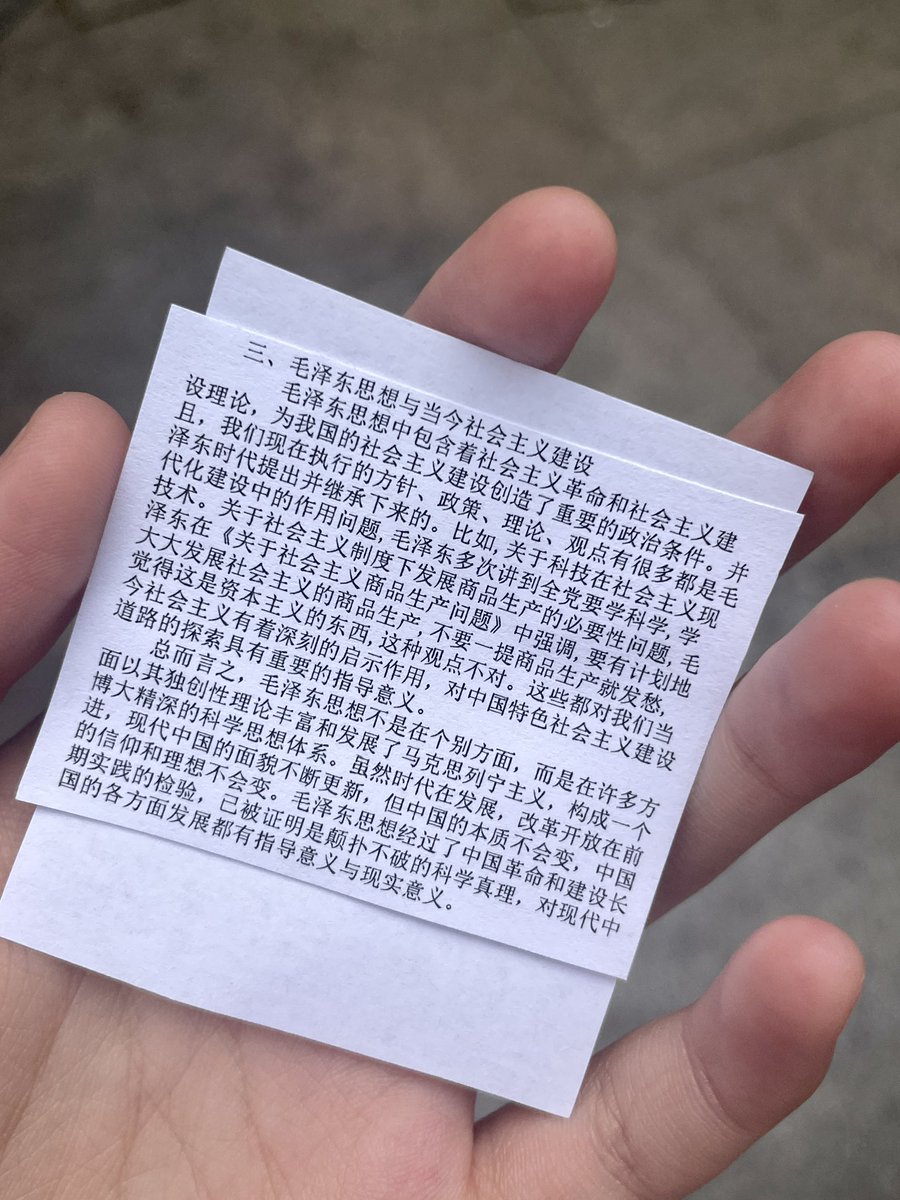 三、毛泽东思想与当今社会主义建设
毛泽东思想中包含着社会主义革命和社会主义建
设理论，为我国的社会主义建设创造了重要的政治条件。并
且，我们现在执行的方针、政策、理论、观点有很多都是毛
泽东时代提出并继承下来的。比如,关于科技在社会主义现
代化建设中的作用问题,毛泽东多次讲到全党要学科学,学
技术。关于社会主义制度下发展商品生产的必要性问题,毛
泽东在《关于社会主义商品生产问题》中强调,要有计划地
大大发展社会主义的商品生产,不要一提商品生产就发愁,
觉得这是资本主义的东西,这种观点不对。这些都对我们当
今社会主义有着深刻的启示作用，对中国特色社会主义建设
道路的探索具有重要的指导意义。
总而言之，毛泽东思想不是在个别方面，而是在许多方
面以其独创性理论丰富和发展了马克思列宁主义，构成一个
博大精深的科学思想体系。虽然时代在发展，改革开放在前
进，现代中国的面貌不断更新，但中国的本质不会变，中国
的信仰和理想不会变。毛泽东思想经过了中国革命和建设长
期实践的检验，已被证明是颠扑不破的科学真理，对现代中
国的各方面发展都有指导意义与现实意义。